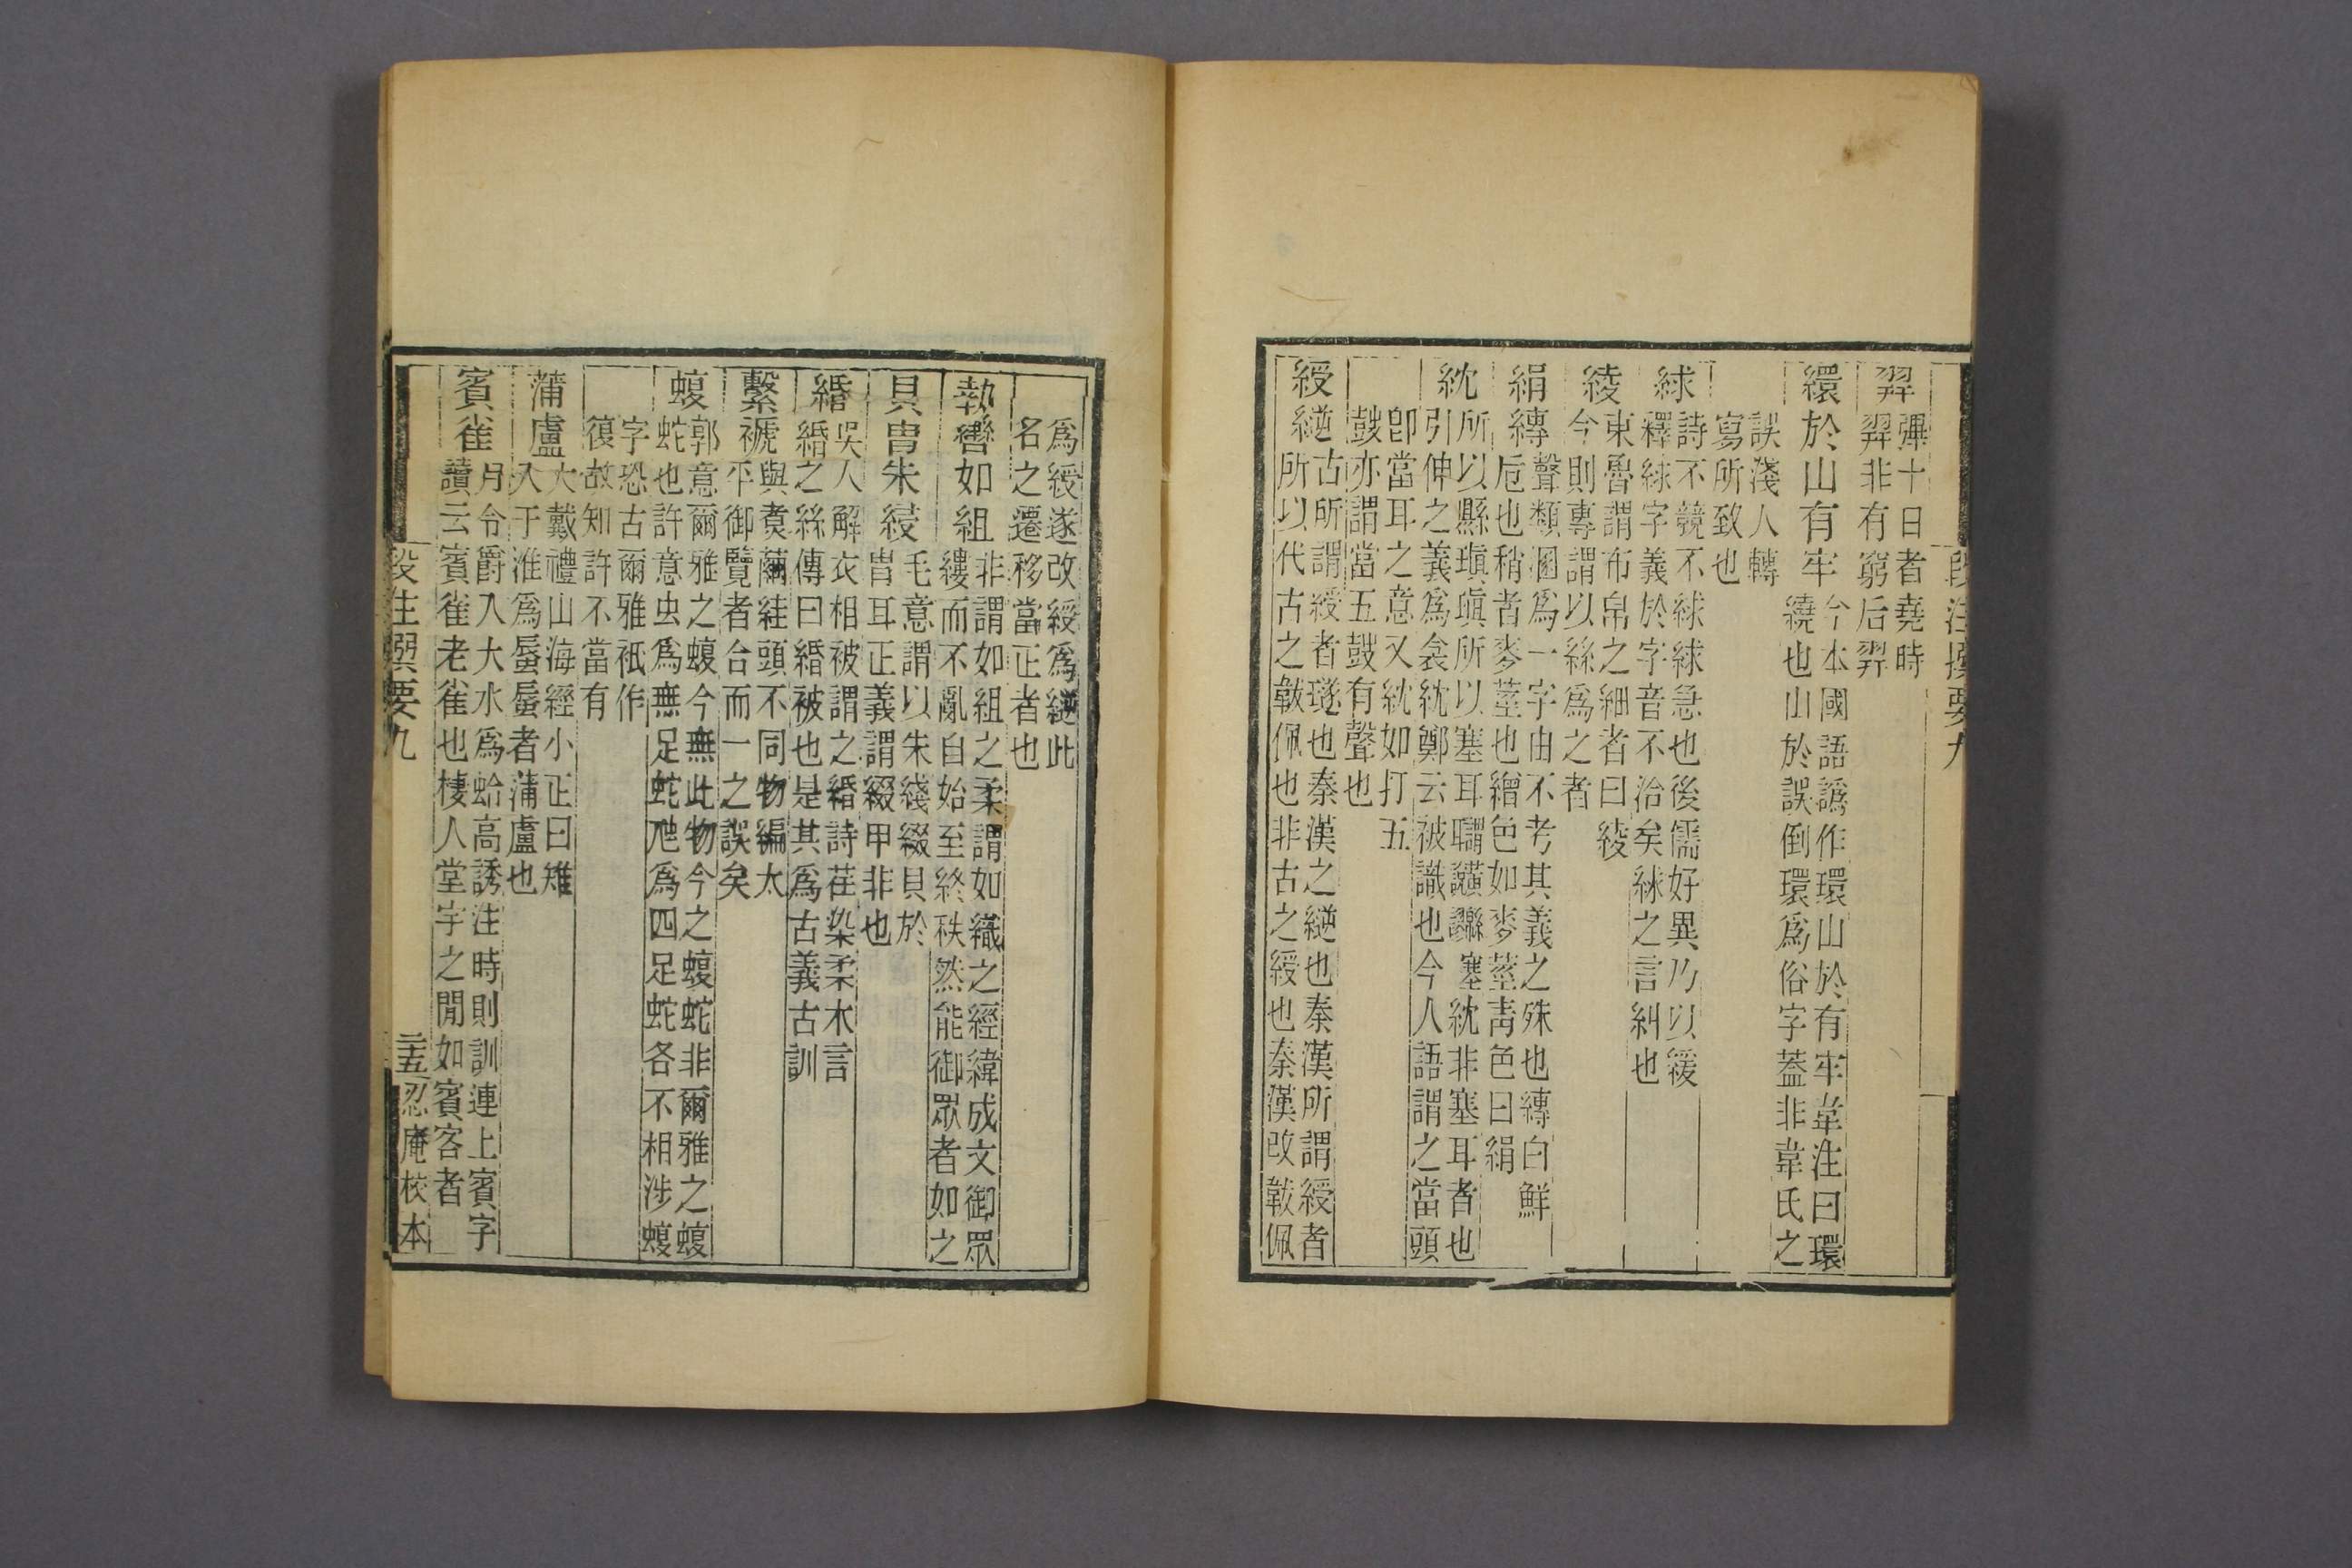 段注撰要九
羿 彈十日者堯時
羿非有窮后羿
繯於山有牢 今本國語譌作環山於有牢韋注曰環
繞也山於誤倒環爲俗字蓋非韋氏之
誤淺人轉
寫所致也
絿 詩不競不絿絿急也後儒好異乃以緩
釋絿字義於字音不洽矣絿之言糾也
綾 東魯謂布帛之細者曰綾
今則專謂以絲爲之者
絹 聲類溷爲一字由不考其義之殊也縳白鮮
縳巵也稍者麥莖也繒色如麥莖靑色曰絹
紞 所以縣瑱瑱所以塞耳紞非塞耳者也
引伸之義爲衾紞鄭云被識也今人語謂之當頭
卽當耳之意又紞如打五
鼓亦謂當五鼓有聲也
綬 古所謂綬者璲也秦漢之縌也秦漢所謂綬者
縌 所以代古之韍佩也非古之綬也秦漢改韍佩
爲綬遂改綬爲縌此
名之遷移當正者也
執轡如組 非謂如組之柔謂如織之經緯成文御眾
縷而不亂自始至終秩然能御眾者如之
貝胄朱綅 毛意謂以朱綫綴貝於
胄耳正義謂綴甲非也
緍 吳人解衣相被謂之緍詩荏染柔木言
緍之絲傳曰緍被也是其爲古義古訓
繫 與煑繭絓頭不同物編太
褫 平御覽者合而一之誤矣
蝮 郭意爾雅之蝮今無此物今之蝮蛇非爾雅之蝮
蛇也許意虫爲無足蛇虺爲四足蛇各不相涉蝮
字恐古爾雅祇作
復故知許不當有
蒲盧 大戴禮山海經小正曰雉
入于淮爲蜃蜃者蒲盧也
賓雀 月令爵入大水爲蛤高誘注時則訓連上賓字
讀云賓雀老雀也棲人堂宇之閒如賓客者
段注撰要九 二十五 忍庵校本